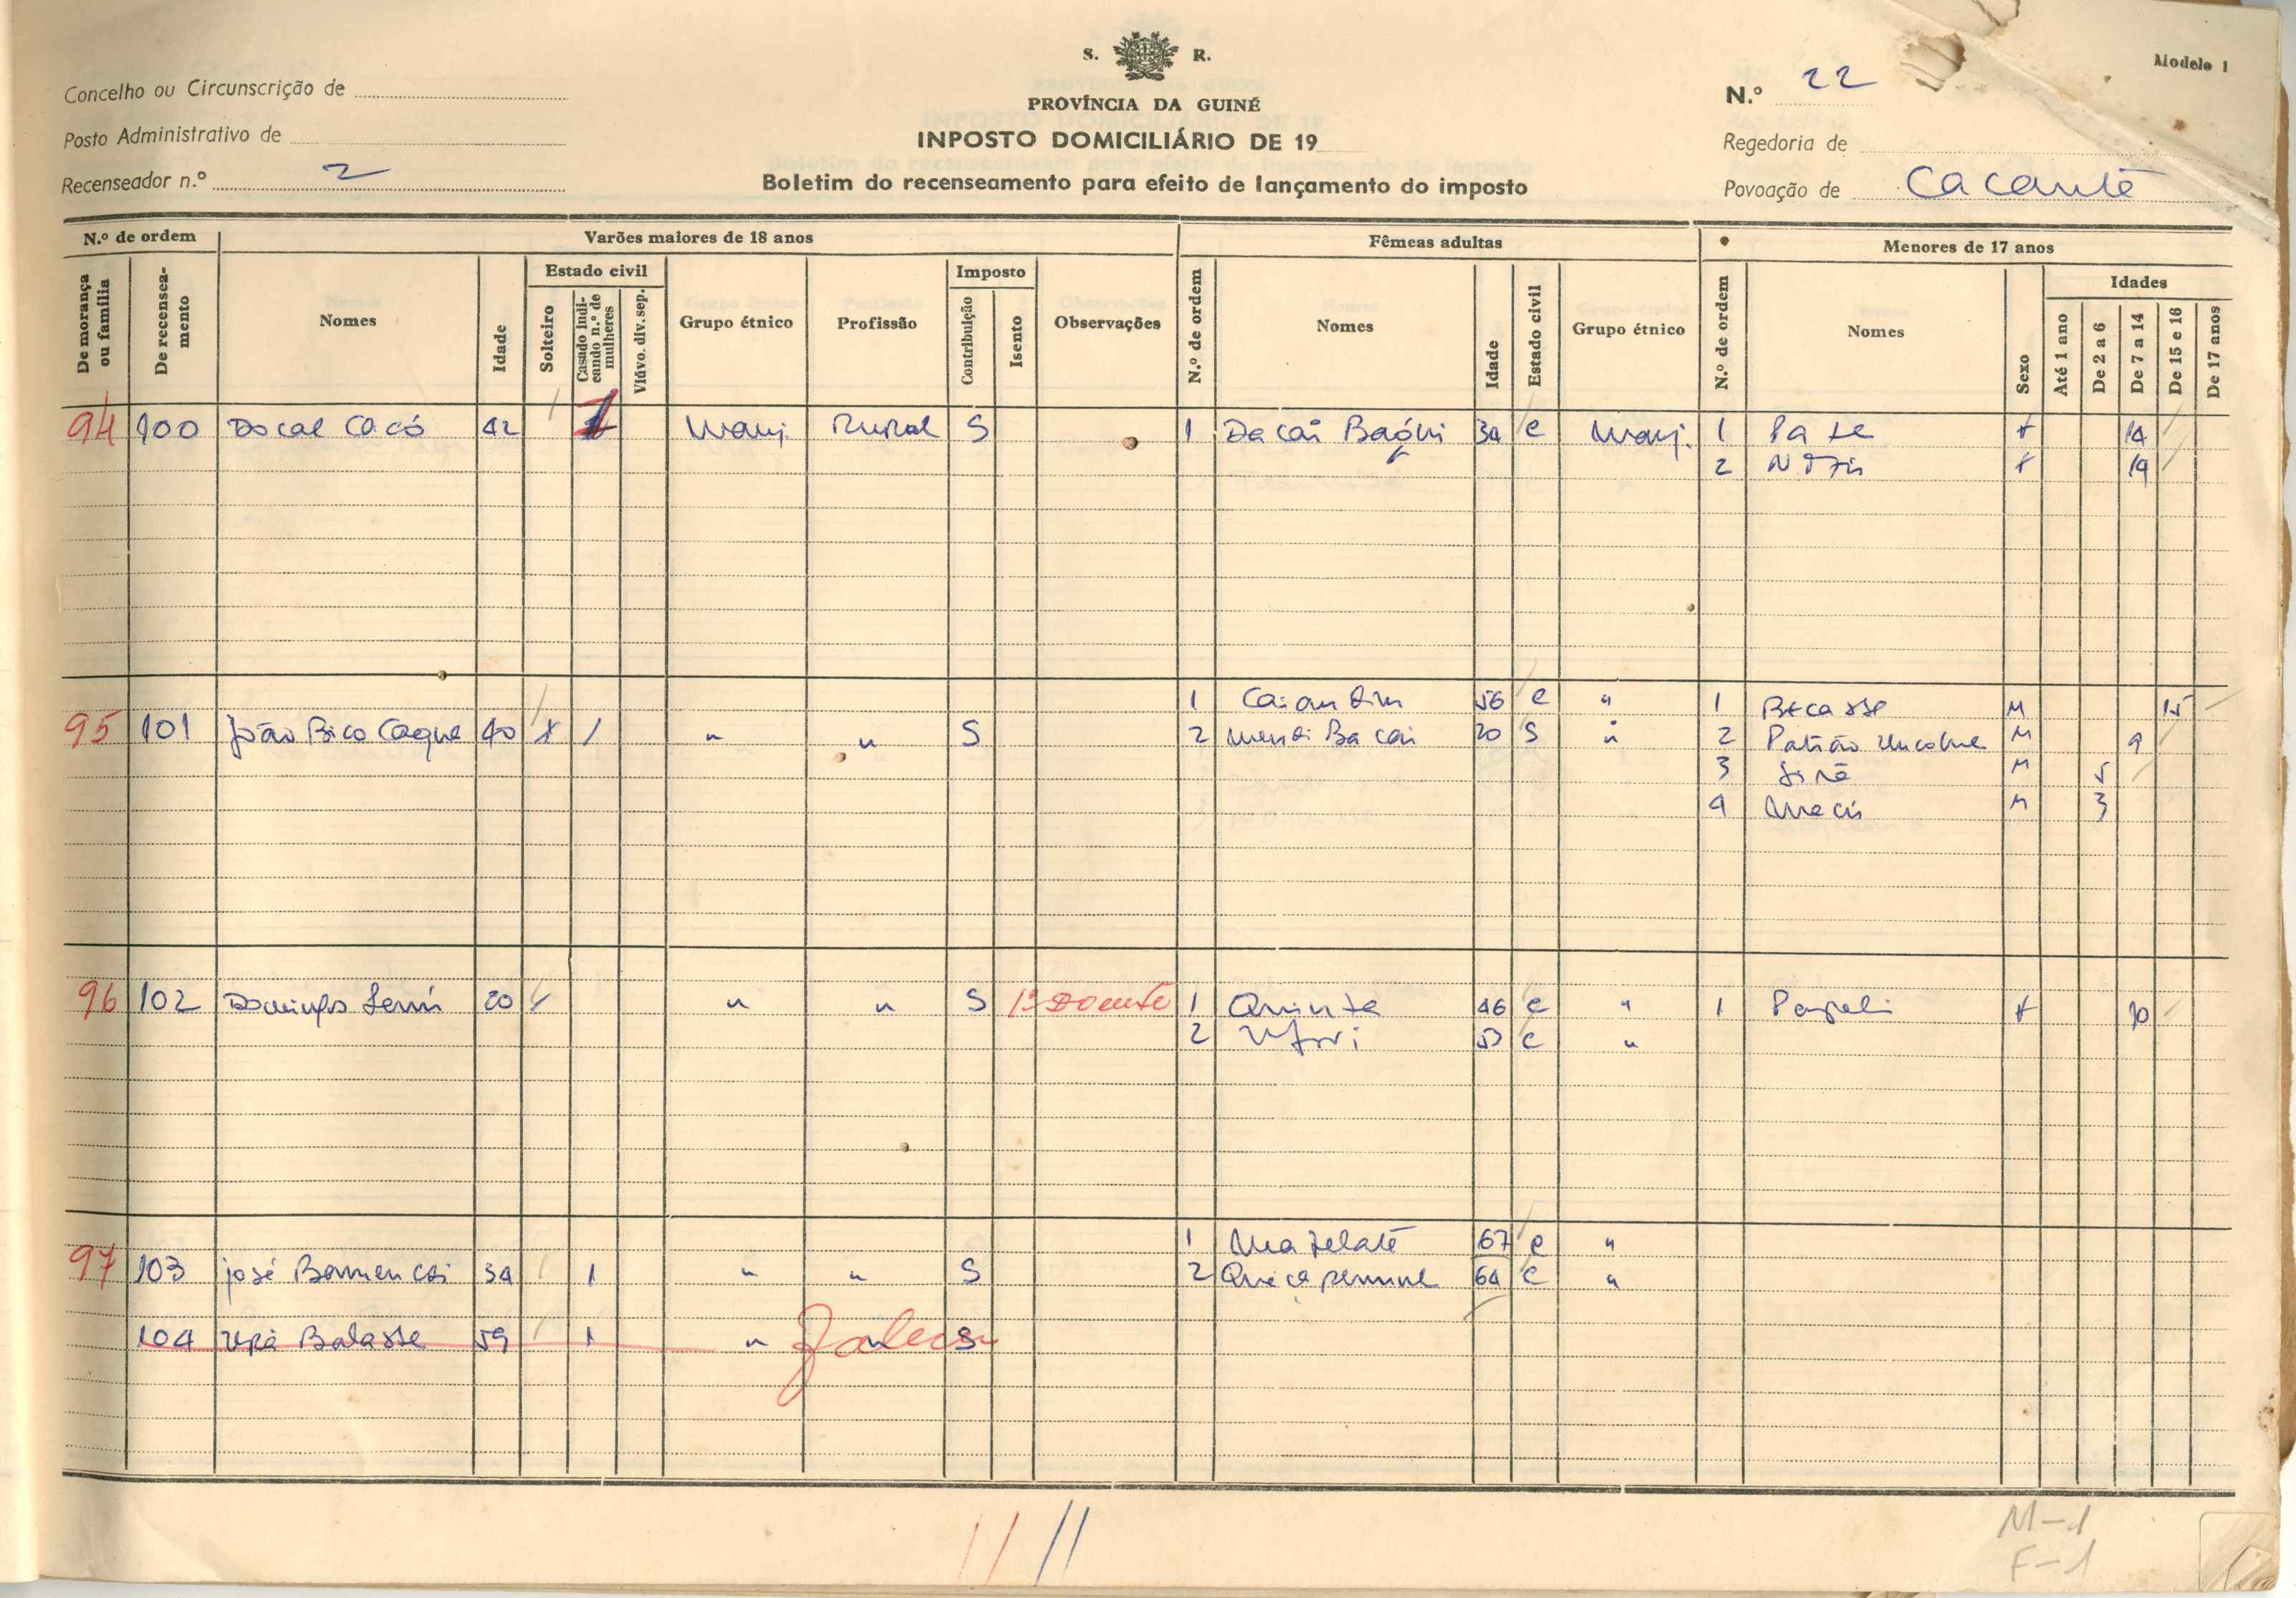 S. R.
Modelo 1
Concelho ou Circunscrição de
PROVÍNCIA DA GUINÉ
N.º 22
Posto Administrativo de
INPOSTO DOMICILIÁRIO DE 19
Regedoria de
Recenseador n.º 2
Boletim do recenseamento para efeito de lançamento do imposto
Povoação de Cacanté
N.º de ordem Varões maiores de 18 anos Fêmeas adultas Menores de 17 anos
De morança ou família
De recenseamento
Nomes
Idade
Estado civil
Solteiro
Casado indicando n.º de mulheres
Viúvo. div. sep.
Grupo étnico
Profissão
Imposto
Contribuição
Isento
Observações
N.º de ordem
Nomes
Idade
Estado civil
Grupo étnico
N.º de ordem
Nomes
Sexo
Idades
Até 1 ano
De 2 a 6
De 7 a 14
De 15 e 16
De 17 anos
94 100 Docal Cacó 42 1 Manj. Rural S 1 Dacai 34 C Manj. 1 Pate F 14
2 F 14
1 56 C " 1 Becasse M 15
95 101 João Bico Caque 40 X / " " S 2 20 S " 2 Patrão M 9
3 M 5
4 M 3
96 102 Domingos 20 " " S Doente 1 Quinta 46 C " 1 Papeli F 10
2 C "
1 67 C "
97 103 José 34 1 " " S 2 64 C "
104 Balasse 59 1 " " S Faleceu
// //
M-1
F-1